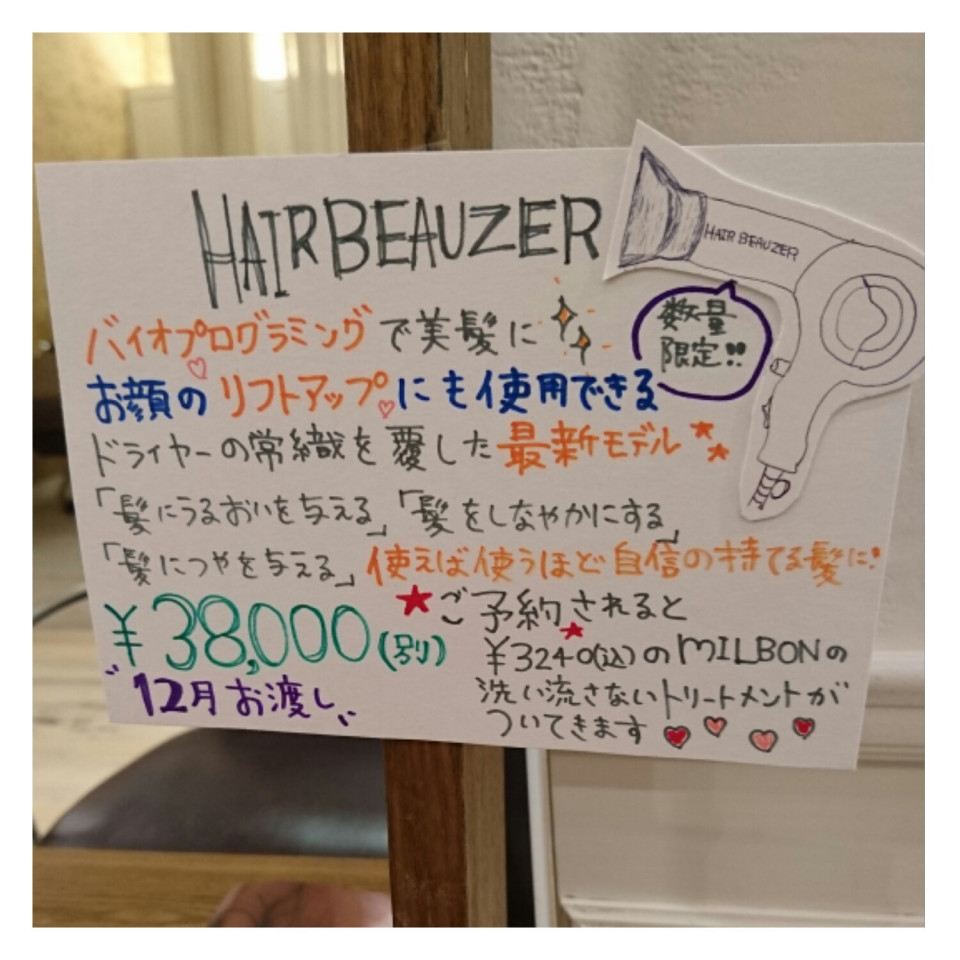 HAIRBEAUZER
HAIR BEAUZER
数量
限定!!
バイオプログラミングで美髪に
お顔のリフトアップにも使用できる
ドライヤーの常織を覆した最新モデル
「髪にうるおいを与える」「髪をしなやかにする」
「髪につやを与える」使えば使うほど自信の持てる髪に!
¥38,000(別)
"12月お渡し"
★ご予約されると
¥3240(込)のMILBONの
洗い流さないトリートメントが
ついてきます